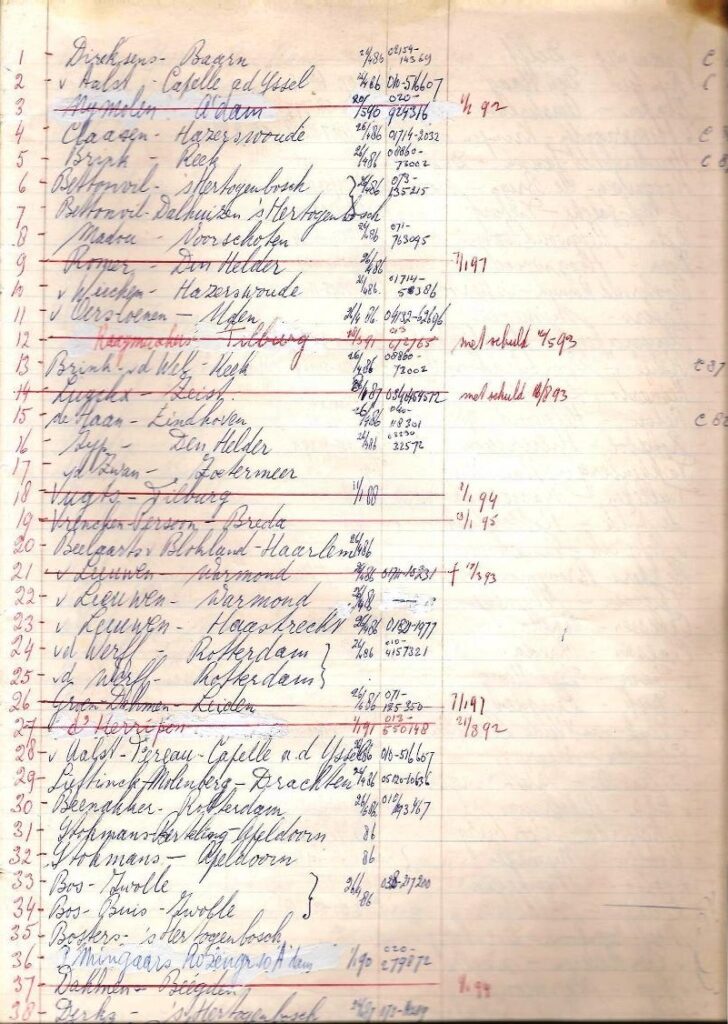 1 - Direksens - Baarn 26/486 02154-14369
2 - v Aalst - Capelle ad Yssel 26/486 010-516607
3 - A'dam 020-924316 1/1 92
4 - Claasen - Hazerswoude 26/486 01714-2032
5 - Brink - Heek 26/486 08860-72002
6 - Bettonvil - 'sHertogenbosch 26/486 073-135215
7 - Bettonvil-Dalhuizen 'sHertogenbosch
8 - Madou - Voorschoten 26/486 071-763095
9 - Romer - Den Helder 26/486 1/1 97
10 - Hazerswoude 26/486 01714-
11 - v Oerstoenen - Uden 26/4 86 04132-62696
12 - Tilburg 013-672765 met schuld 93
13 - Brink - vd Wel - Heek 26/486 08860-72002
14 - Zeist met schuld /893
15 - de Haan - Eindhoven 26/486 040-118301
16 - Zyp - Den Helder 26/486 02230-32572
17 - vd Zwan - Zoetermeer
18 - Vugts - Tilburg 1/1 88 1/1 94
19 - Vrencken-Persoon - Breda 1/1 95
20 - Beelaarts v Blokland - Haarlem 26/486
21 - v Leeuwen - Warmond 26/486 † /393
22 - v Leeuwen - Warmond 26/486
23 - v Leeuwen - Haastrecht 26/486 01821-1977
24 - vd Werff - Rotterdam 26/486 010-4157321
25 - vd Werff - Rotterdam
26 - Groen-Dahmen - Leiden 26/486 071- 1/1 97
27 - d'Herripon 1/1 91 013-550148 21/892
28 - v Aalst - Pereau - Capelle a.d Yssel 26/486 010-516607
29 - Lieftinck-Molenberg - Drachten 26/486 05120-10636
30 - Beenakker - Rotterdam 26/486 010/
31 - Stokmans Apeldoorn 86
32 - Stokmans - Apeldoorn 86
33 - Bos - Zwolle 26/4 86 038-217200
34 - Bos - Buis - Zwolle
35 - Bosters - 'sHertogenbosch
36 - Mingaars Rozengr A'dam 1/1 90 020-279872
37 - Dahmen - Beegden 1/1 94
38 - Derks - 'sHertogenbosch